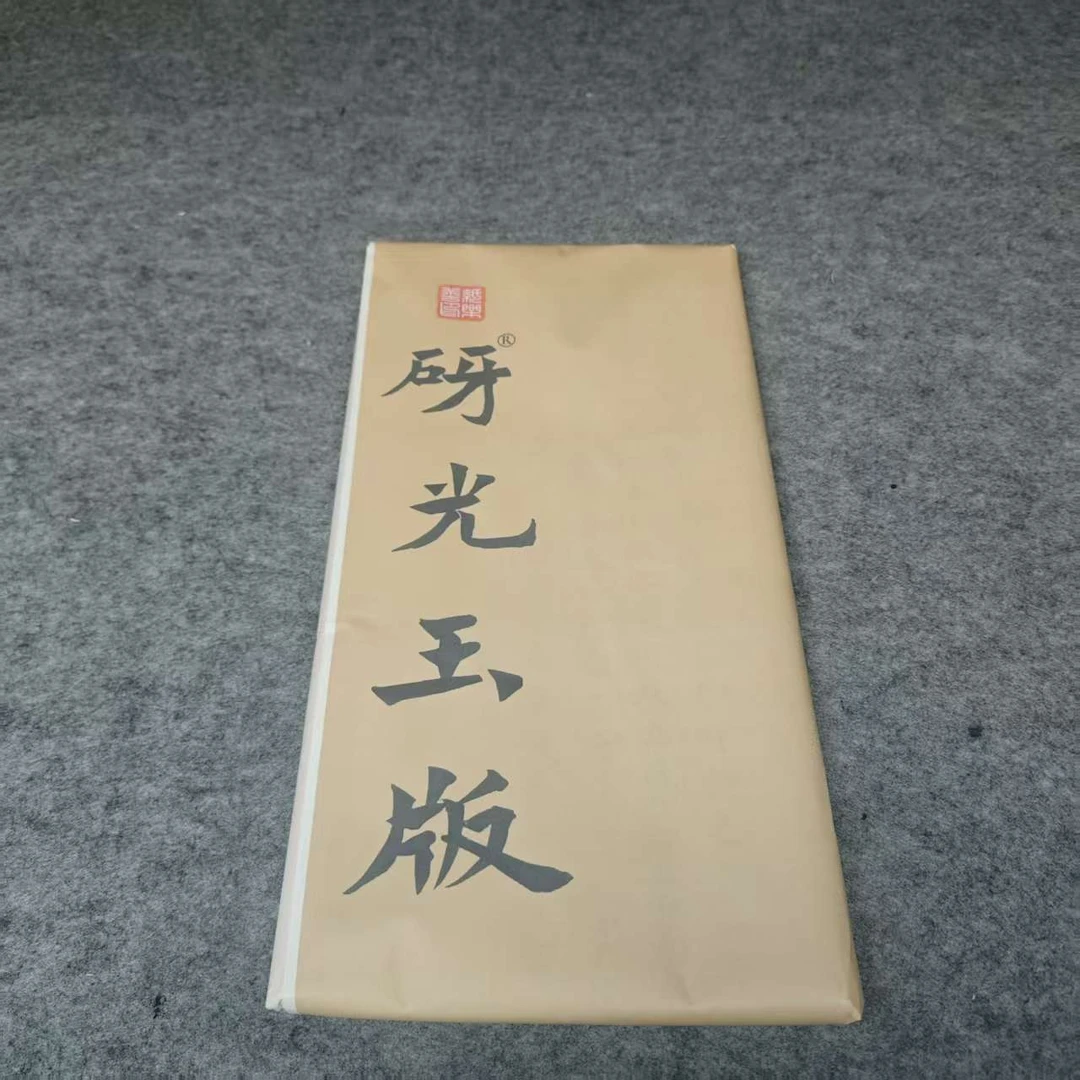 砑®
光
玉
版